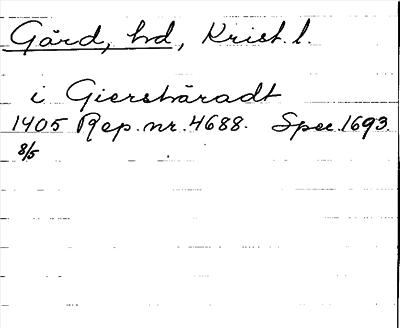 Gård, hd, Krist. l.
i Giershäradt
1405 Rep. nr. 4688. Spec. 1693.
8/5